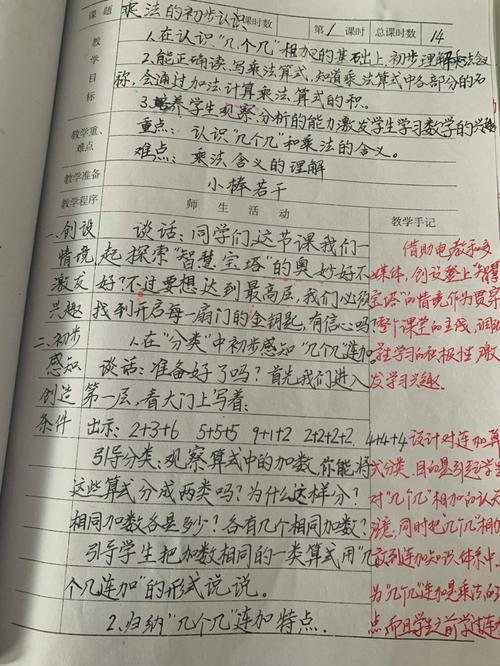 课题 乘法的初步认识 课时数 第1课时 总课时数 14
教学目标
1.在认识"几个几"相加的基础上,初步理解乘法含
2.能正确读、写乘法算式,知道乘法算式中各部分的名
称,会通过加法计算乘法算式的积。
3.培养学生观察、分析的能力,激发学生学习数学的兴趣
教学重、难点
重点:认识"几个几"和乘法的含义。
难点:乘法含义的理解
教学准备 小棒若干
教学程序 师生活动 教学手记
一.创设情境激发兴趣
谈话:同学们,这节课我们一
起探索"智慧宝塔"的奥妙好不
好?不过要想达到最高层,我们必须
找到开启每一扇门的金钥匙,有信心吗?
二.初步感知创造条件
1.在"分类"中初步感知"几个几"连加
谈话:准备好了吗?首先我们进入
第一层,看大门上写着:
出示:2+3+6 5+5+5 9+1+2 2+2+2+2 4+4+4
引导分类:观察算式中的加数,你能将
这些算式分成两类吗?为什么这样分?
相同加数各是多少?各有几个相同加数?
引导学生把加数相同的一类算式用"几
个几连加"的形式说一说。
2.归纳"几个几"连加特点.
借助电教和多
媒体,创设登上"智慧
宝塔"的情境作为贯穿
整个课堂的主线,调动
学习的积极性,激
发学习兴趣.
设计对连加算
式分类,目的是引起学生
对"几个几"相加的认
注意,同时把"几个几"相加
放到连加知识体系中.
为"几个几"连加是乘法的
点,而且学生之前学过连加